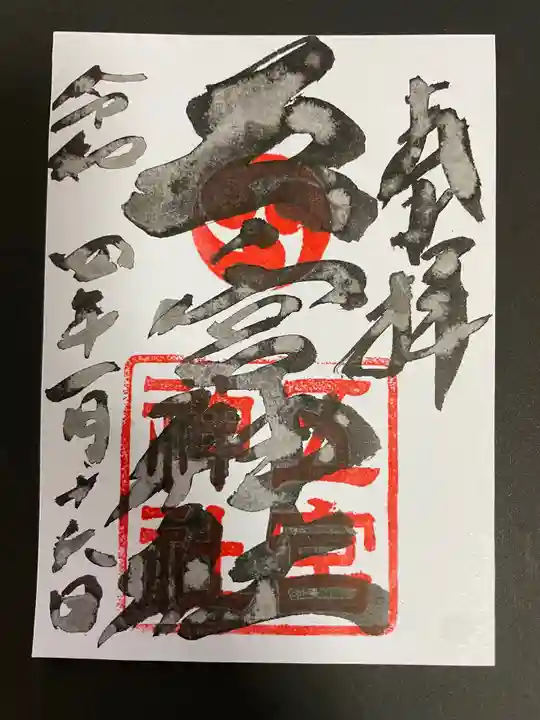 奉拝
五宮神社
五宮
神社
令和四年一月十六日